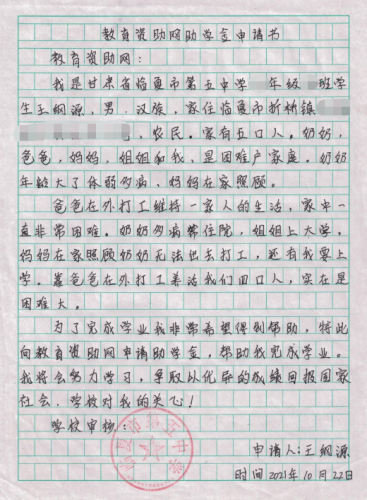 教育资助网助学金申请书
教育资助网：
我是甘肃省临夏市第五中学 年级 班学
生王纲源，男，汉族，家住临夏市折桥镇
，农民。家有五口人。奶奶，
爸爸，妈妈，姐姐和我、是困难户家庭。奶奶
年龄大了体弱多病，妈妈在家照顾。
爸爸在外打工维持一家人的生活，家中一
直非常困难。奶奶多病常住院，姐姐上大学，
妈妈在家照顾奶奶无法出去打工，还有我要上
学。靠爸爸在外打工养活我们四口人，实在是
困难大。
为了完成学业我非常希望得到帮助，特此
向教育资助网申请助学金，帮助我完成学业。
我将会努力学习，争取以优异的成绩回报国家
社会、学校对我的关心！
学校审核：
临夏市第五中学
申请人：王纲源
时间 2021年10月22日